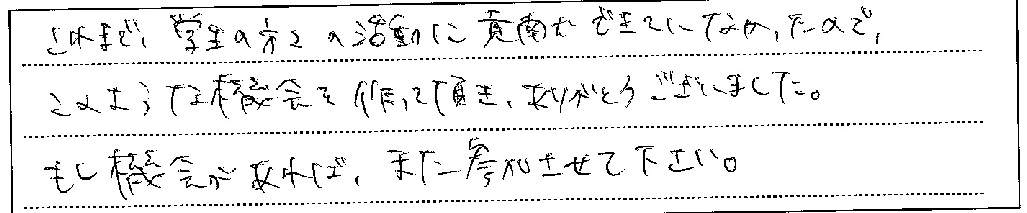 これまで、学生の方との活動に貢献できていなかったので、
このような機会を作って頂き、ありがとうございました。
もし機会があれば、また参加させて下さい。